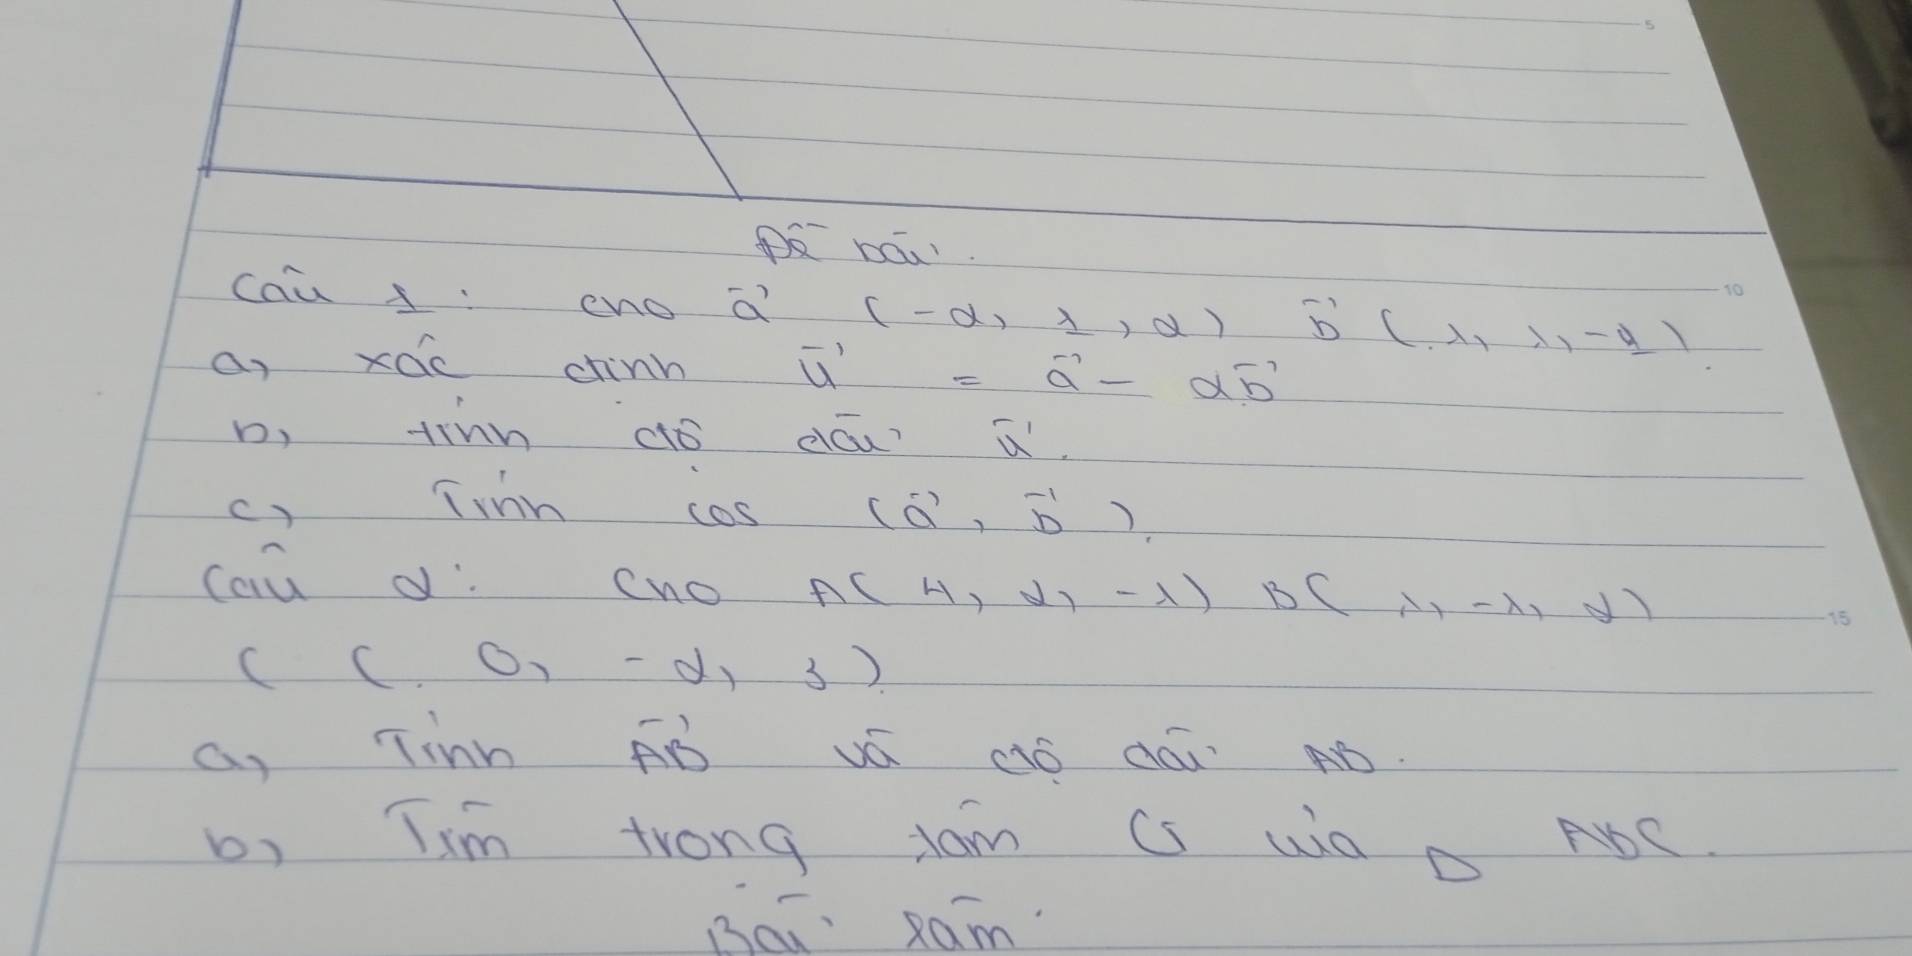 5
Đề bài.
10
Câu 1: Cho a⃗ (-2, 1, 2) b⃗ (1, 1, -1).
a, xác định u⃗ = a⃗ - 2b⃗
b, tính độ dài u⃗.
c, Tính cos (a⃗, b⃗).
Câu 2: Cho A( 4, 2, -1) B( 1, -1, 2)
15
C ( 0, -2, 3).
a, Tính A⃗B⃗ và độ dài AB.
b, Tìm trọng tâm G của Δ ABC.
Bài làm.